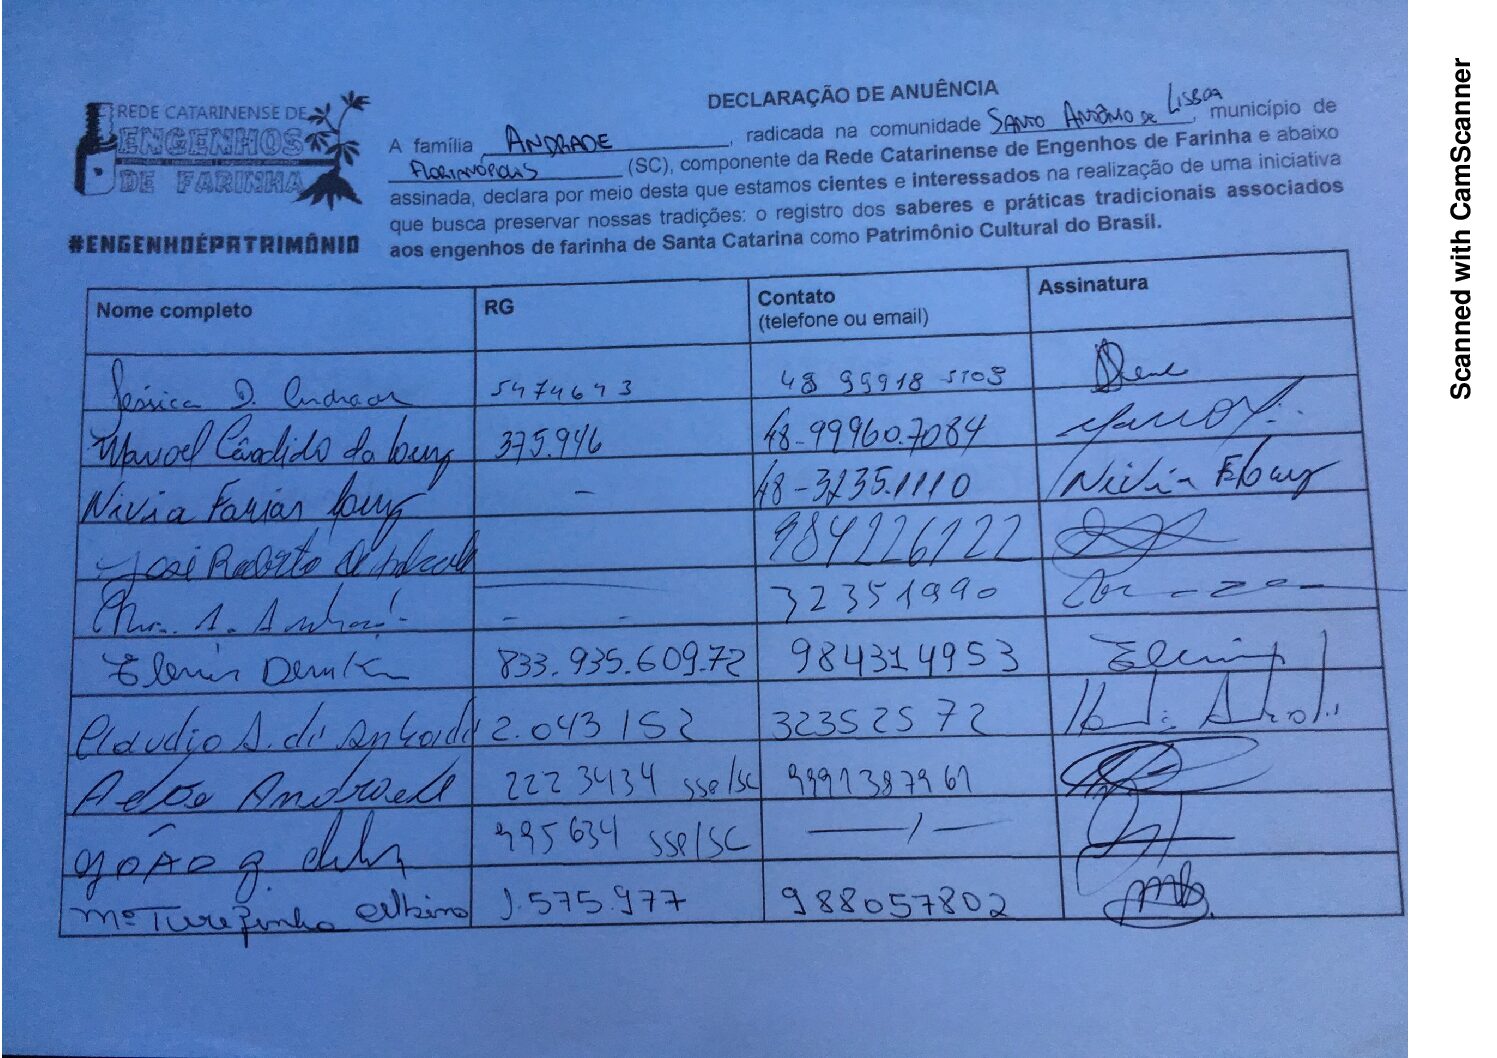 REDE CATARINENSE DE
ENGENHOS
DE FARINHA
#ENGENHOÉPATRIMÔNIO
DECLARAÇÃO DE ANUÊNCIA
A família ANDRADE, radicada na comunidade SANTO ANTÔNIO DE LISBOA, município de
FLORIANÓPOLIS (SC), componente da Rede Catarinense de Engenhos de Farinha e abaixo
assinada, declara por meio desta que estamos cientes e interessados na realização de uma iniciativa
que busca preservar nossas tradições: o registro dos saberes e práticas tradicionais associados
aos engenhos de farinha de Santa Catarina como Patrimônio Cultural do Brasil.
Nome completo RG Contato (telefone ou email) Assinatura
Jéssica D. Andrade 5474643 48 99918 5105
Manoel Cândido da Luz 375.946 48-99960.7084
Nivia Farias Luz - 48-3235.1110 Nivia F Luz
José Roberto de Andrade 984226122
A. Andrade - - 32351990
Elenir 833.935.609.72 984314953 Elenir
Claudio A. de Andrade 2.043 152 32352572
Andrade 222 3434 SSP/SC 9991387961
JOÃO 995634 SSP/SC
Mª Terezinha Albino 1.575.977 988057802
Scanned with CamScanner